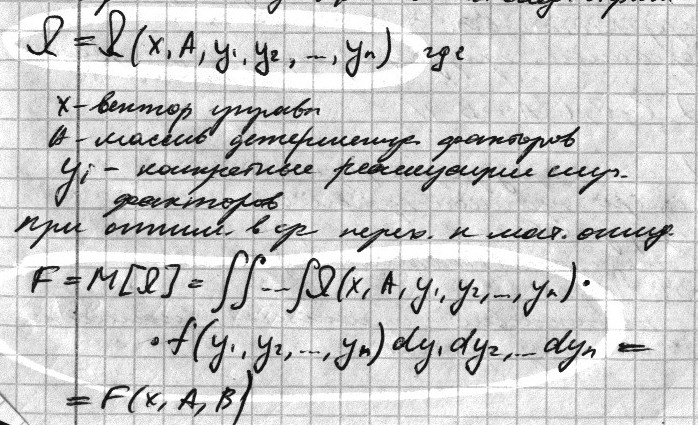 Ω = Ω(x, A, y₁, y₂, ..., yₙ) где
x - вектор управл
A - массив детерминир. факторов
yᵢ - конкретные реализации случ.
факторов
при оптим. в ср перех. к мат. ожид.
F = M[Ω] = ∫∫...∫Ω(x, A, y₁, y₂, ..., yₙ)·
·f(y₁, y₂, ..., yₙ)dy₁dy₂,...dyₙ =
= F(x, A, B)